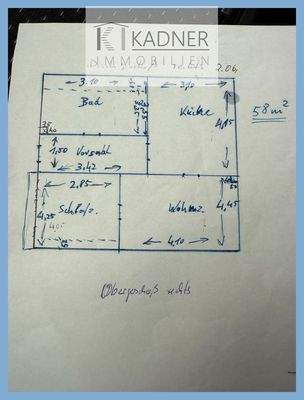 KADNER
IMMOBILIEN
2.06.
3.10
Bad
Küche
4,15
58 m²
1,50
Vorsaal
3,42
2,85
Schlafz.
4,25
Wohnz.
4,45
4,10
Obergeschoß rechts